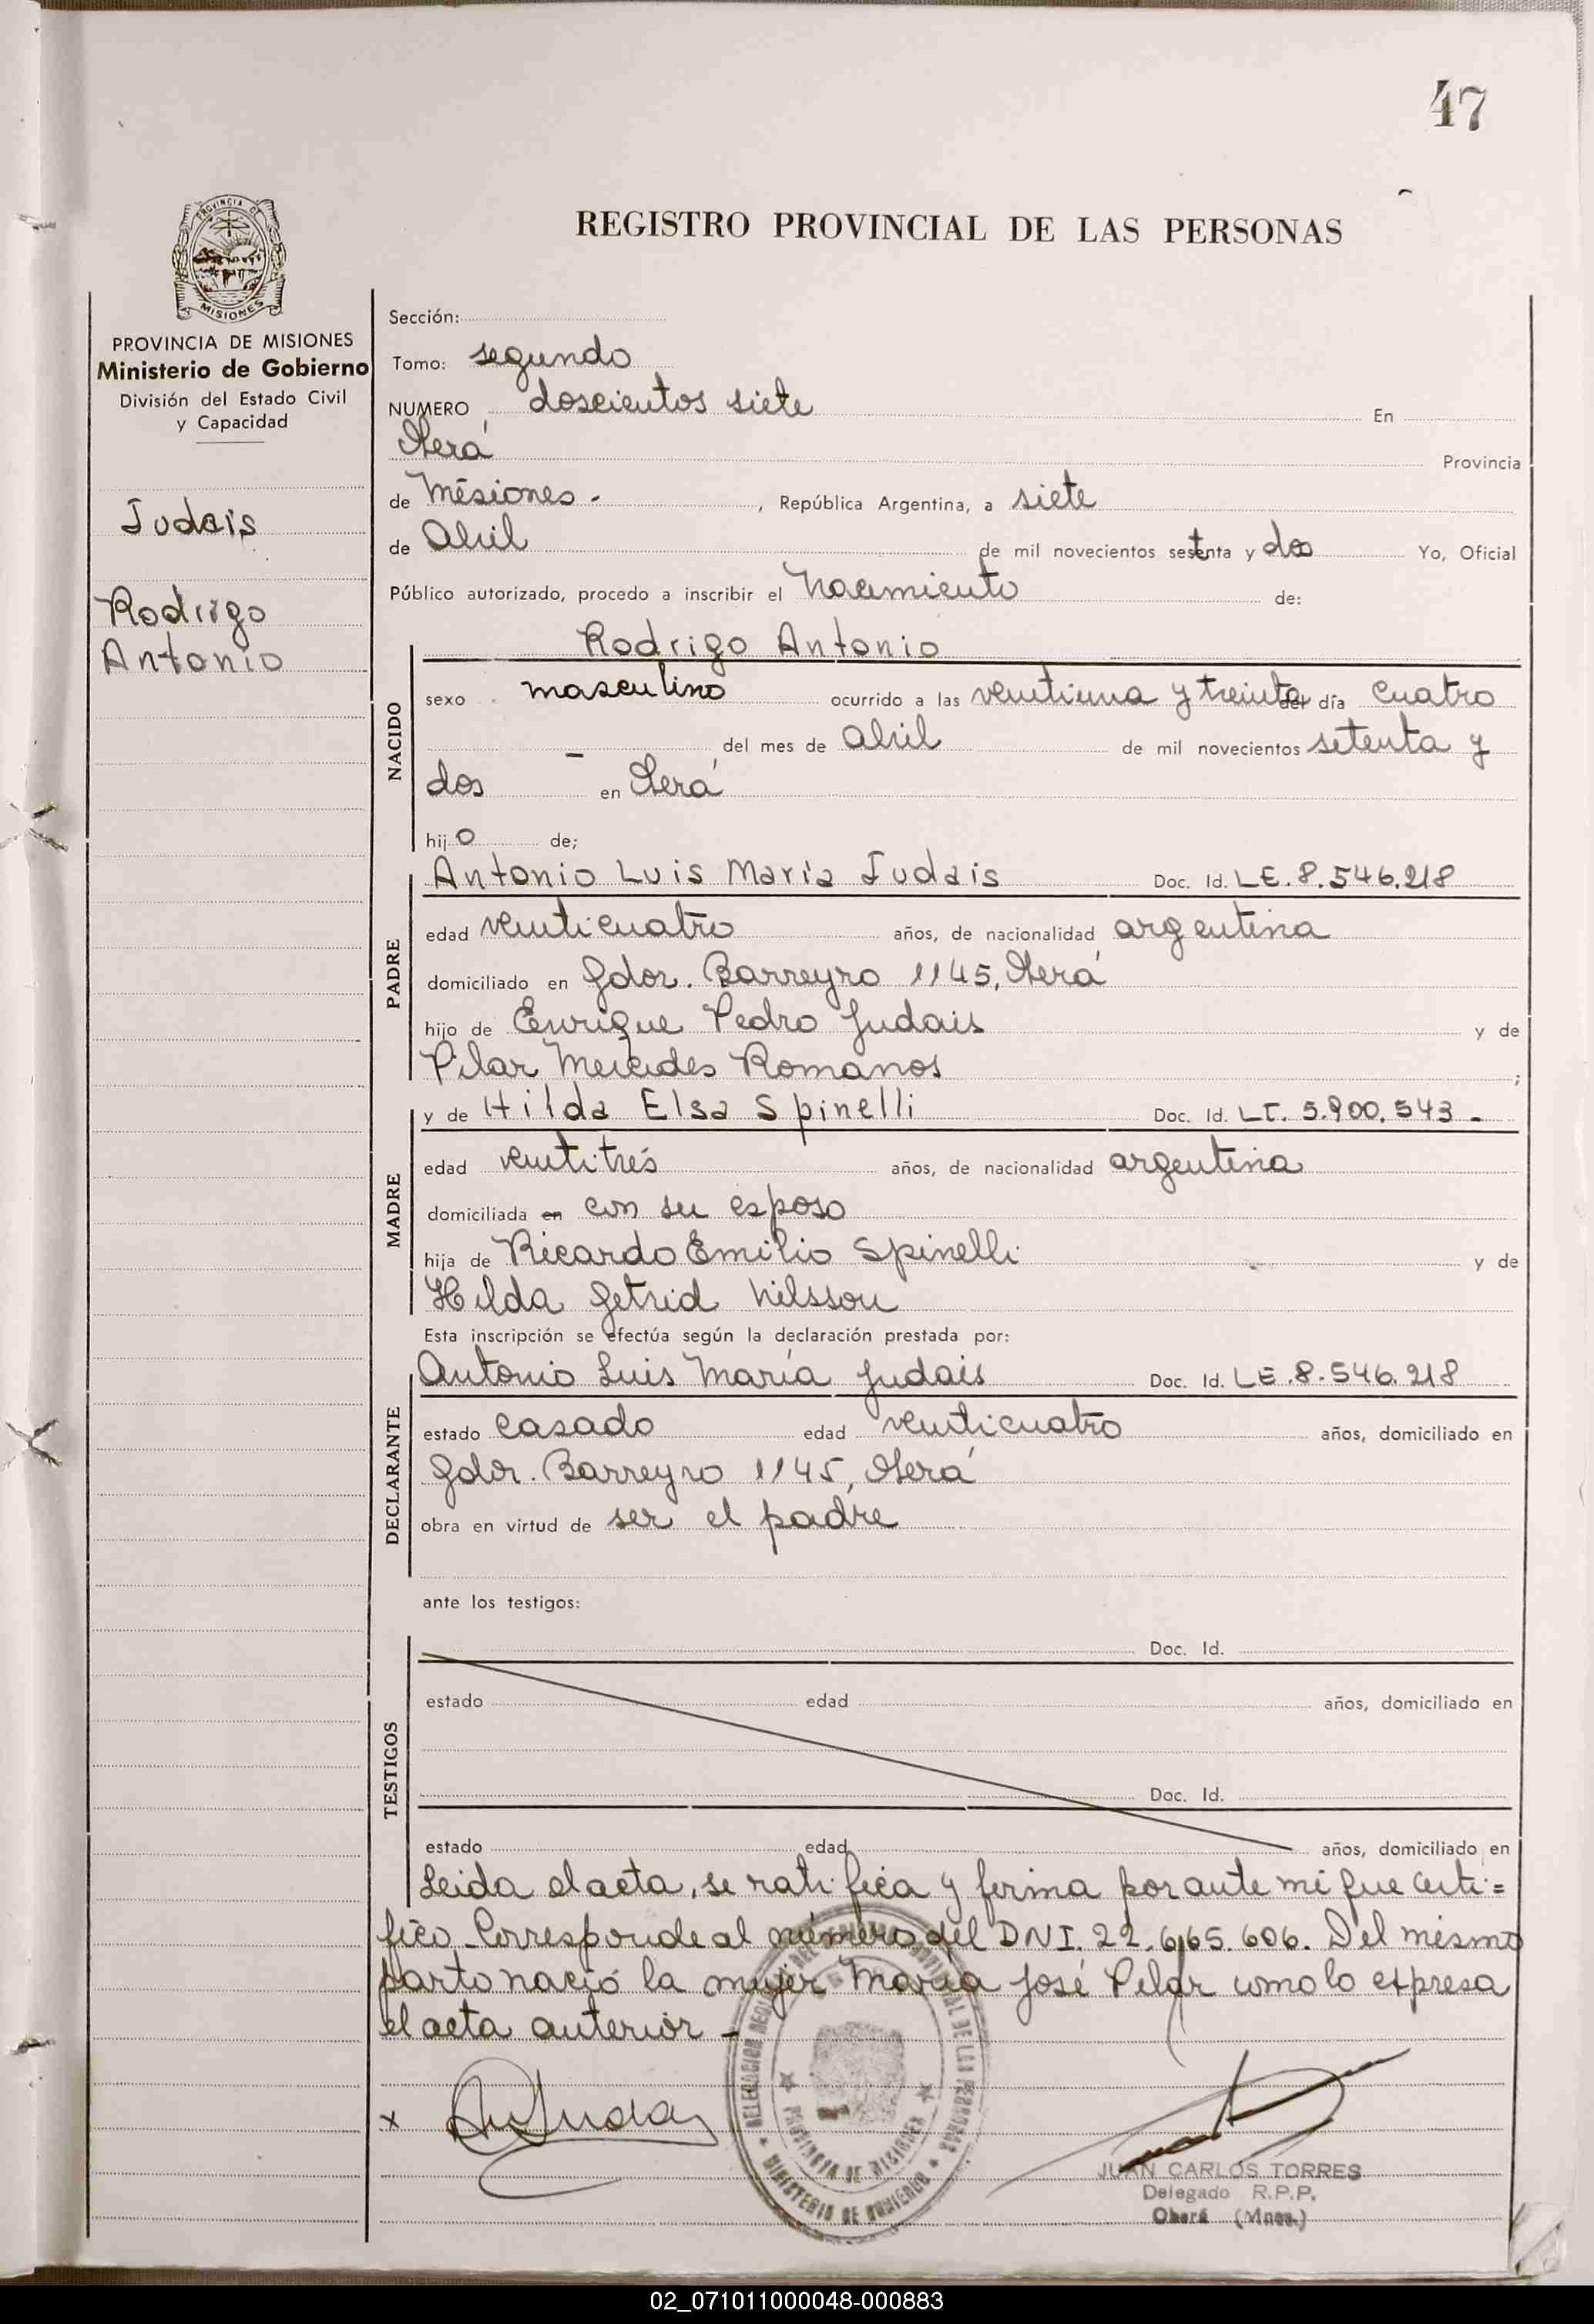 47
REGISTRO PROVINCIAL DE LAS PERSONAS
PROVINCIA DE MISIONES
Ministerio de Gobierno
División del Estado Civil
y Capacidad
Judais
Rodrigo
Antonio
Sección:
Tomo: segundo
NUMERO doscientos siete En
Oberá Provincia
de Misiones. , República Argentina, a siete
de Abril de mil novecientos setenta y dos Yo, Oficial
Público autorizado, procedo a inscribir el Nacimiento de:
NACIDO
Rodrigo Antonio
sexo masculino ocurrido a las veintiuna y treinta del día cuatro
— del mes de Abril de mil novecientos setenta y
dos en Oberá
hijo de;
PADRE
Antonio Luis María Judais Doc. Id. LE. 8.546.218
edad veinticuatro años, de nacionalidad argentina
domiciliado en Gdor. Barreyro 1145, Oberá
hijo de Enrique Pedro Judais y de
Pilar Mercedes Romanos ;
MADRE
y de Hilda Elsa Spinelli Doc. Id. LC. 5.900.543 -
edad veintitrés años, de nacionalidad argentina
domiciliada en con su esposo
hija de Ricardo Emilio Spinelli y de
Hilda Getrid Nilsson
Esta inscripción se efectúa según la declaración prestada por:
DECLARANTE
Antonio Luis María Judais Doc. Id. LE. 8.546.218
estado casado edad veinticuatro años, domiciliado en
Gdor. Barreyro 1145, Oberá
obra en virtud de ser el padre
ante los testigos:
TESTIGOS
Doc. Id.
estado edad años, domiciliado en
Doc. Id.
estado edad años, domiciliado en
Leida el acta, se ratifica y firma por ante mi que certi=
fico. Corresponde al número del DNI. 22.665.606. Del mismo
parto nació la mujer María José Pilar como lo expresa
el acta anterior -
x
JUAN CARLOS TORRES
Delegado R.P.P.
Oberá (Mnes.)
PROVINCIA DE MISIONES
MINISTERIO DE GOBIERNO
02_071011000048-000883